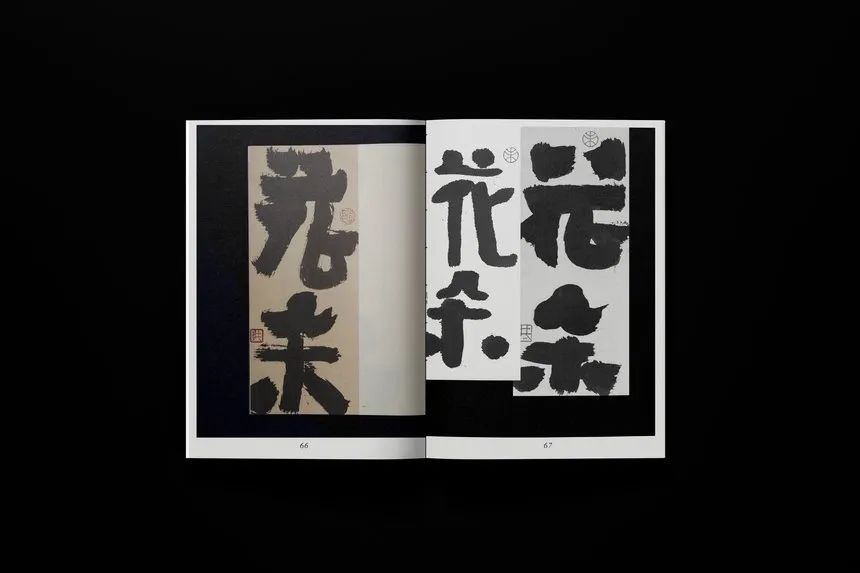 花朵
66
花朵
花朵
67